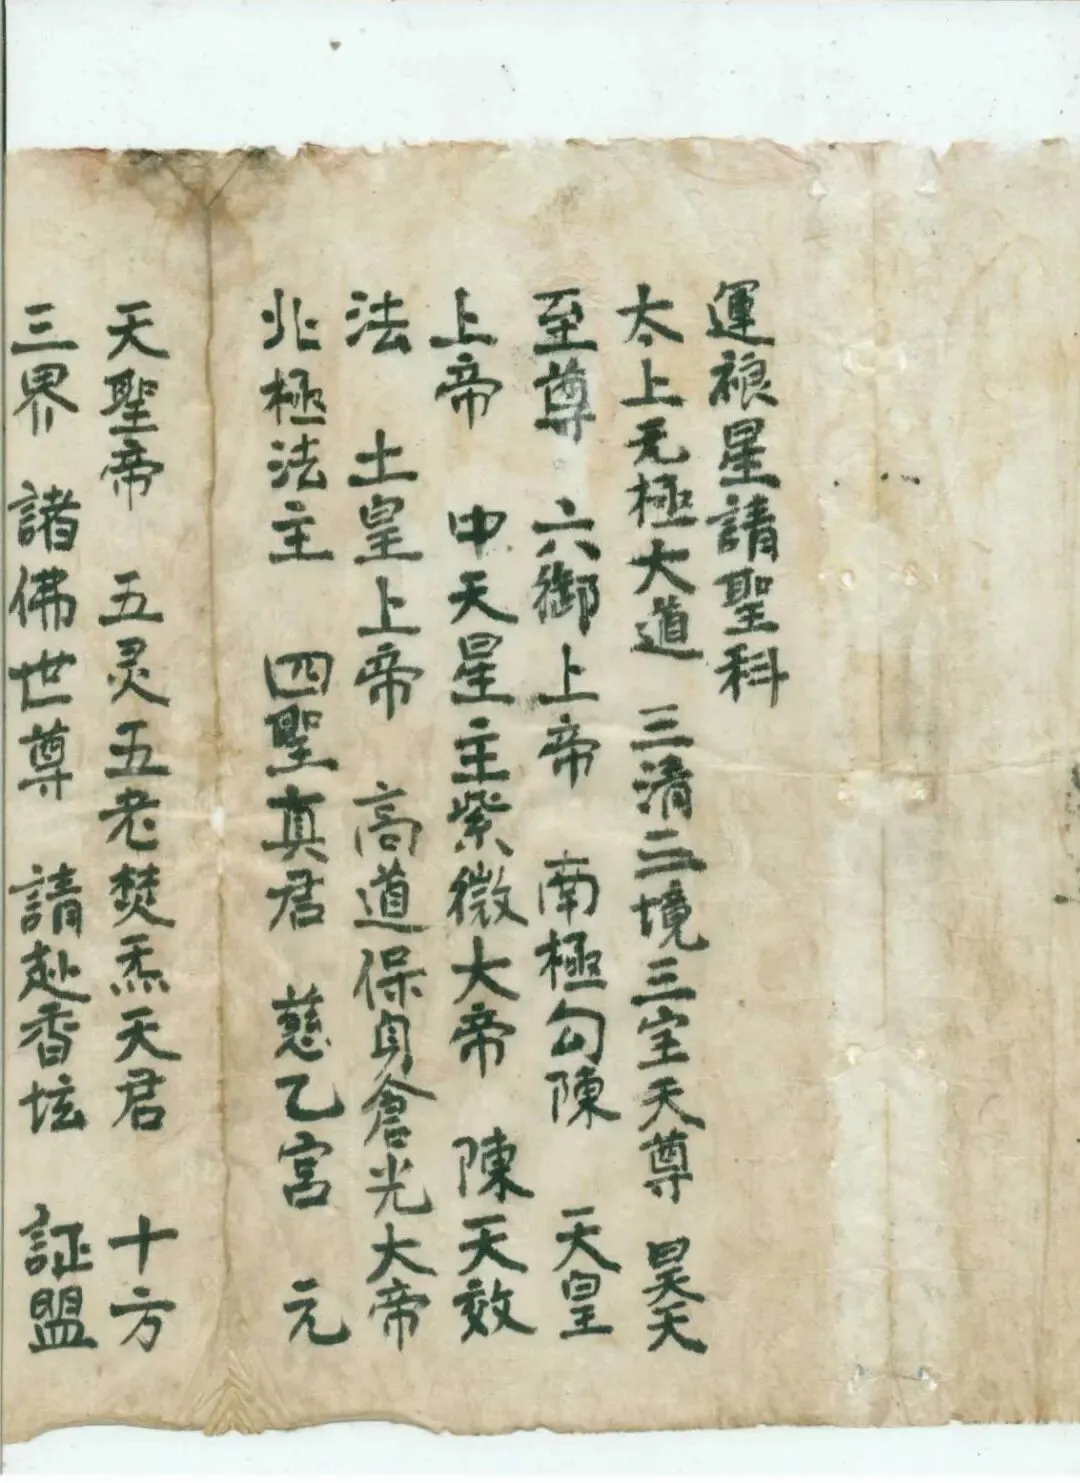 運祿星請聖科
太上无極大道 三清三境三宝天尊 昊天
至尊 六御上帝 南極勾陳 天皇
上帝 中天星主紫微大帝 陳天效
法 土皇上帝 高道保身倉光大帝
北極法主 四聖真君 慈乙宮 元
天聖帝 五灵五老焚炁天君 十方
三界 諸佛世尊 請赴香坛 証盟